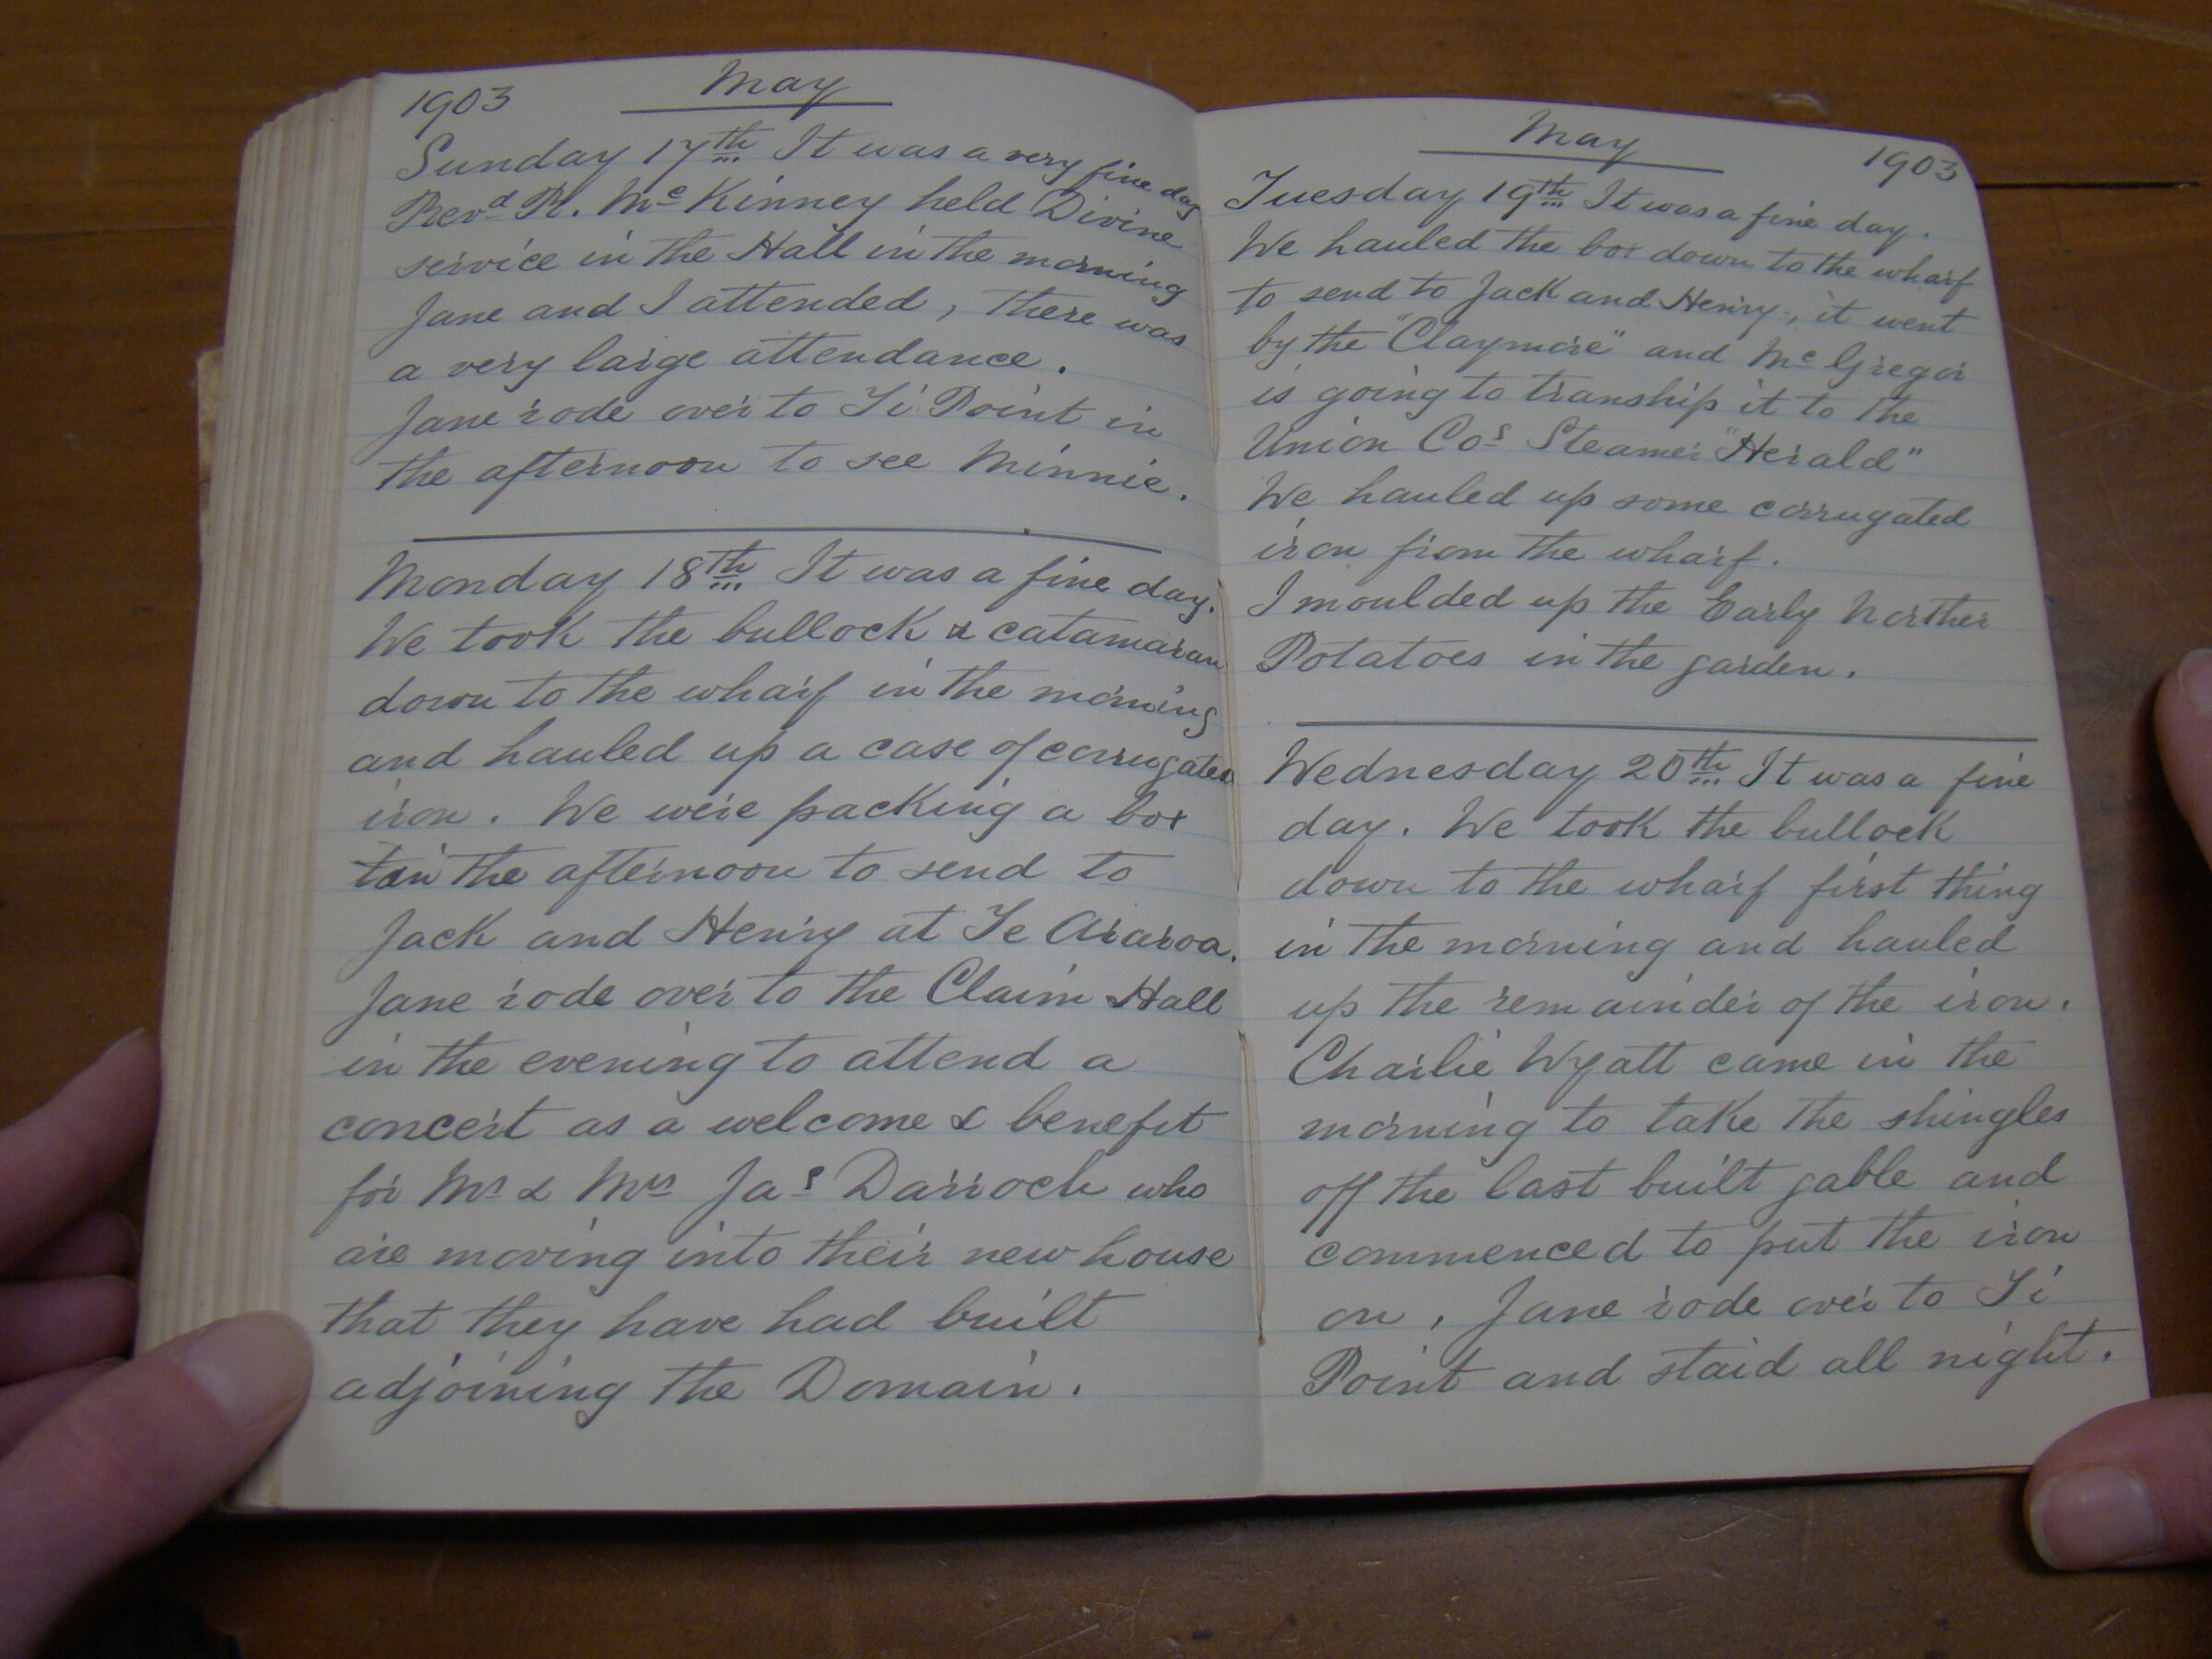 1903 May
Sunday 17th It was a very fine day
Revd R. McKinney held Divine
service in the Hall in the morning
Jane and I attended, there was
a very large attendance.
Jane rode over to Ti Point in
the afternoon to see Minnie.
Monday 18th It was a fine day.
We took the bullock & catamaran
down to the wharf in the morning
and hauled up a case of corrugated
iron. We were packing a box
in the afternoon to send to
Jack and Henry at Te Araroa.
Jane rode over to the Claim Hall
in the evening to attend a
concert as a welcome & benefit
for Mr & Mrs Jas Darroch who
are moving into their new house
that they have had built
adjoining the Domain.
May 1903
Tuesday 19th It was a fine day.
We hauled the box down to the wharf
to send to Jack and Henry, it went
by the "Claymore" and McGregor
is going to tranship it to the
Union Cos Steamer "Herald"
We hauled up some corrugated
iron from the wharf.
I moulded up the Early Norther
Potatoes in the garden.
Wednesday 20th It was a fine
day. We took the bullock
down to the wharf first thing
in the morning and hauled
up the remainder of the iron.
Charlie Wyatt came in the
morning to take the shingles
off the last built gable and
commenced to put the iron
on, Jane rode over to Ti
Point and staid all night.